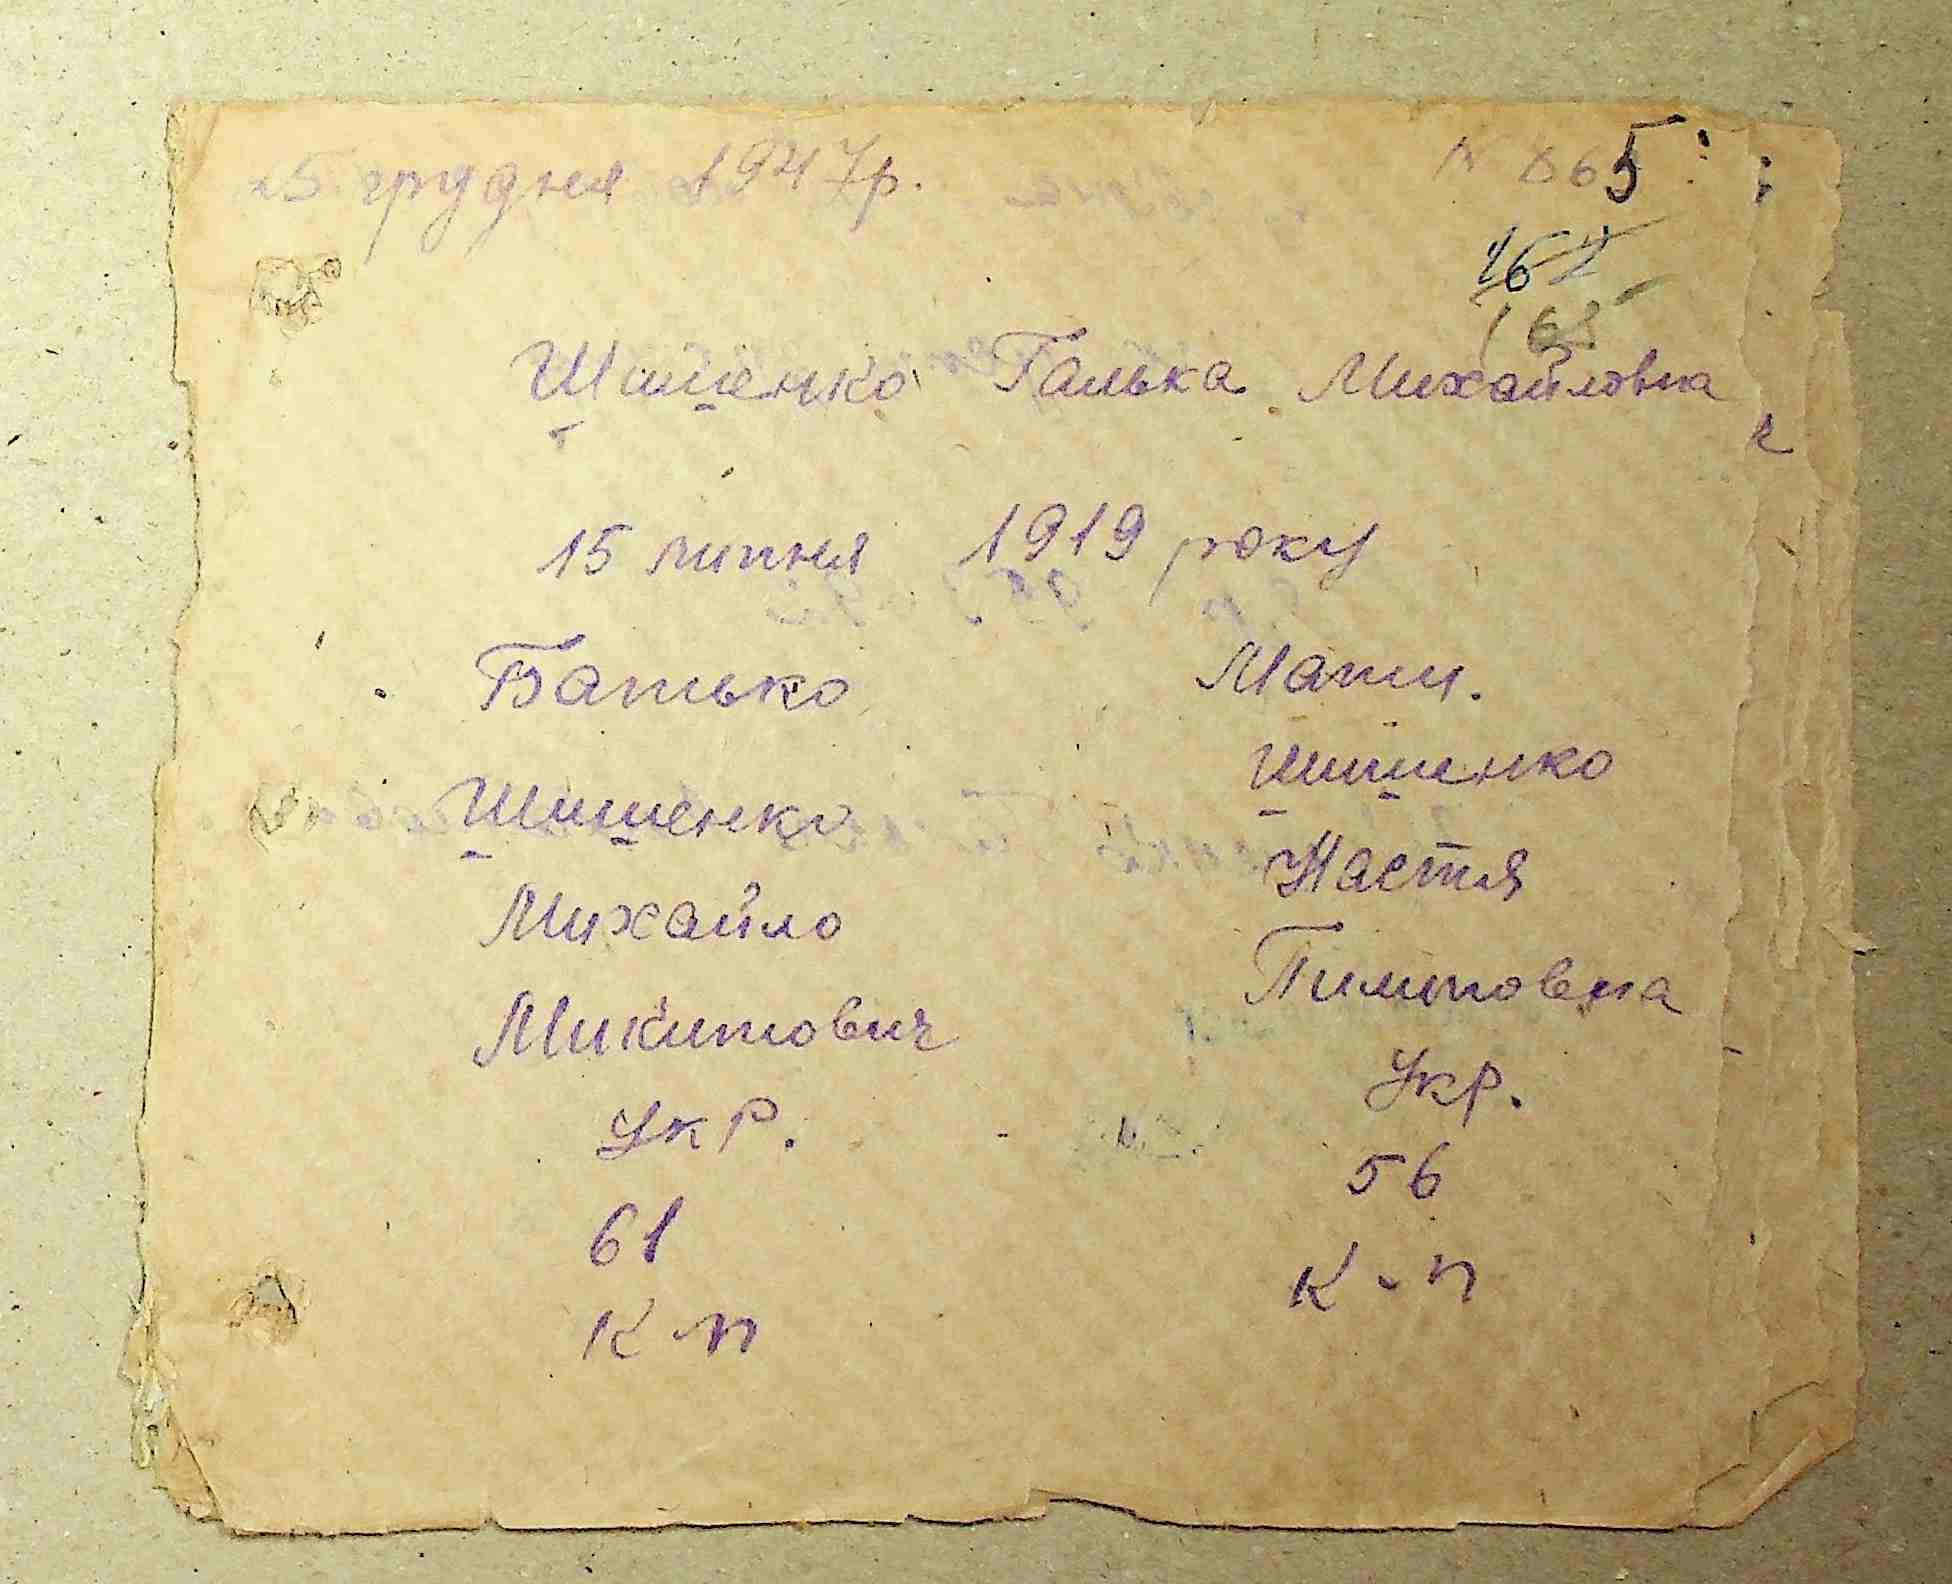 25 грудня 1947р. N 865
164
163
Шишенко Галька Михайловна
15 липня 1919 року
Батько Мати.
Шишенко Шишенко
Михайло Настя
Микитович Пилиповна
Укр. Укр.
61 56
К-п К-п